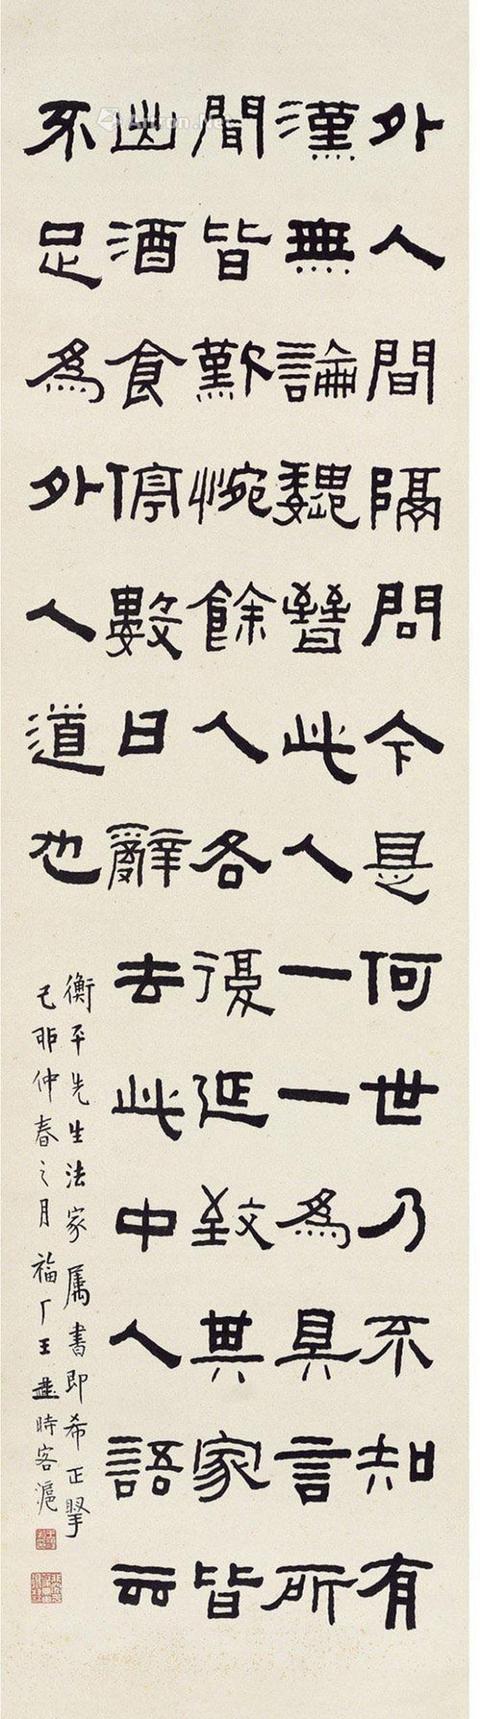 外人間隔問今是何世乃不知有
漢無論魏晉此人一一為具言所
聞皆歎惋餘人各復延致其家皆
出酒食停數日辭去此中人語云
不足為外人道也
衡平先生法家属書即希正掔
己卯仲春之月福厂王禔時客滬
Artron.Net